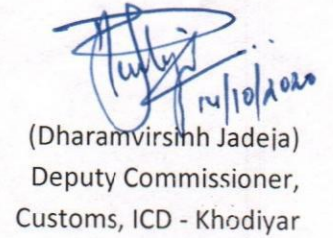 14/10/2020
(Dharamvirsinh Jadeja)
Deputy Commissioner,
Customs, ICD - Khodiyar